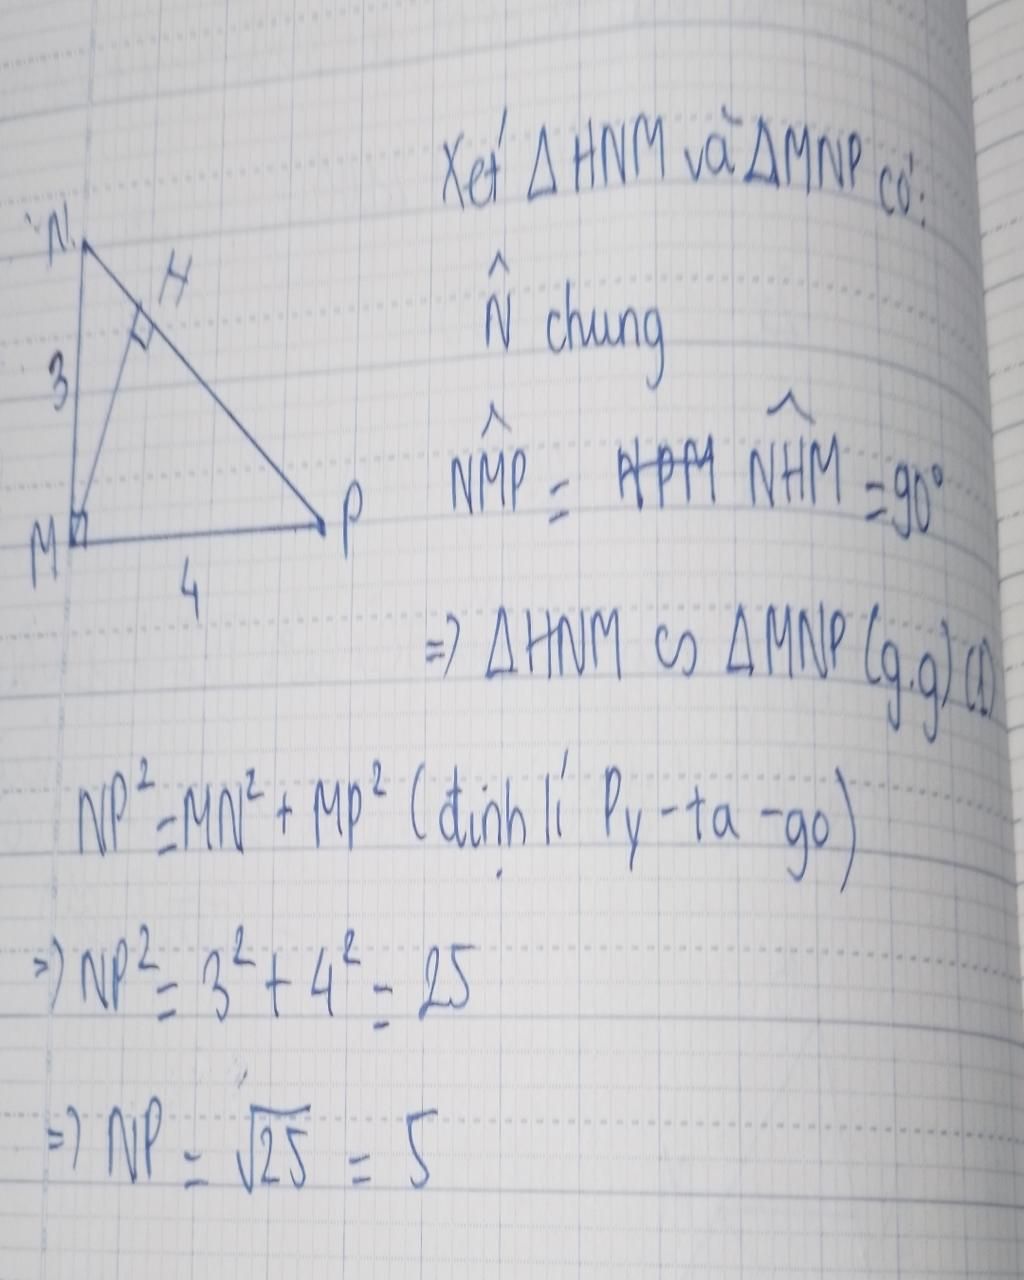 Xét Δ HNM và ΔMNP có:
N
H
N̂ chung
3
NMP̂ = NHM̂ = 90°
M
P
4
=> Δ HNM ∽ Δ MNP (g.g) (1)
NP² = MN² + MP² (định lí Py-ta-go)
=> NP² = 3² + 4² = 25
=> NP = √25 = 5